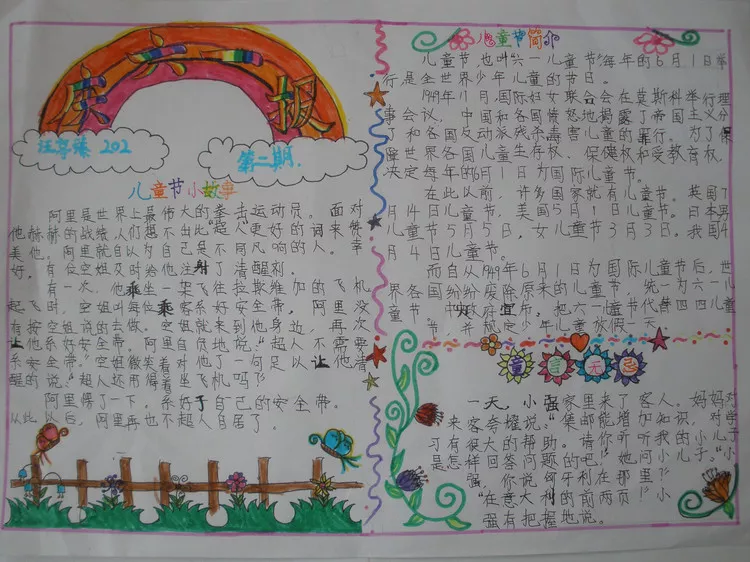 庆六一报
汪  臻 202
第二期.
儿童节小故事
阿里是世界上最伟大的拳击运动员。面对
他赫赫的战绩人们想不出比“超人”更好的词来赞
美他。阿里就自以为自己是不同凡响的人。幸
好,有位空姐及时给他注射了清醒剂。
有一次,他乘坐一架飞往拉斯维加的飞机
起飞时,空姐叫每位乘客系好安全带,阿里没
有按空姐说的去做。空姐就来到他身边,再次
让他系好安全带。阿里自负地说。“超人不需要
系安全带。”空姐微笑着对他了一句足以让他清
醒的说。“超人还用得着坐飞机吗?”
阿里愣了一下,系好于自己的安全带。
从此以后,阿里再也不超人自居了。
儿童节简介
儿童节,也叫“六一儿童节”每年的6月1日举
行是全世界少年儿童的节日。
1949年11月,国际妇女联合会在莫斯科举行理
事会议,中国和各国愤怒地揭露了帝国主义分
了和各国反动派残杀毒害儿童的罪行。为了保
障世界各国儿童生存权、保健权和受教育权,
决定每年的6月1日为国际儿童节。
在此以前,许多国家就有儿童节。英国7
月14日儿童节,美国5月1日儿童节。日本男
儿童节5月5日,女儿童节3月3日。我国4
月4日儿童节。
而自从1949年6月1日为国际儿童节后,世
界各国纷纷废除原来的儿童节,统一为六一儿
童节,央府宜后。把六一儿童节代替四四儿童
节,并规定少年儿童放假一天
童言无忌
一天,小强家里来了客人。妈妈对
来客夸耀说。“集邮能增加知识,对学
习有很大的帮助。请你听听我的小儿子
是怎样回答问题的吧!”她问小儿子。“小
强,你说匈牙利在那里?”
“在意大利的前两页!”小
强有把握地说。